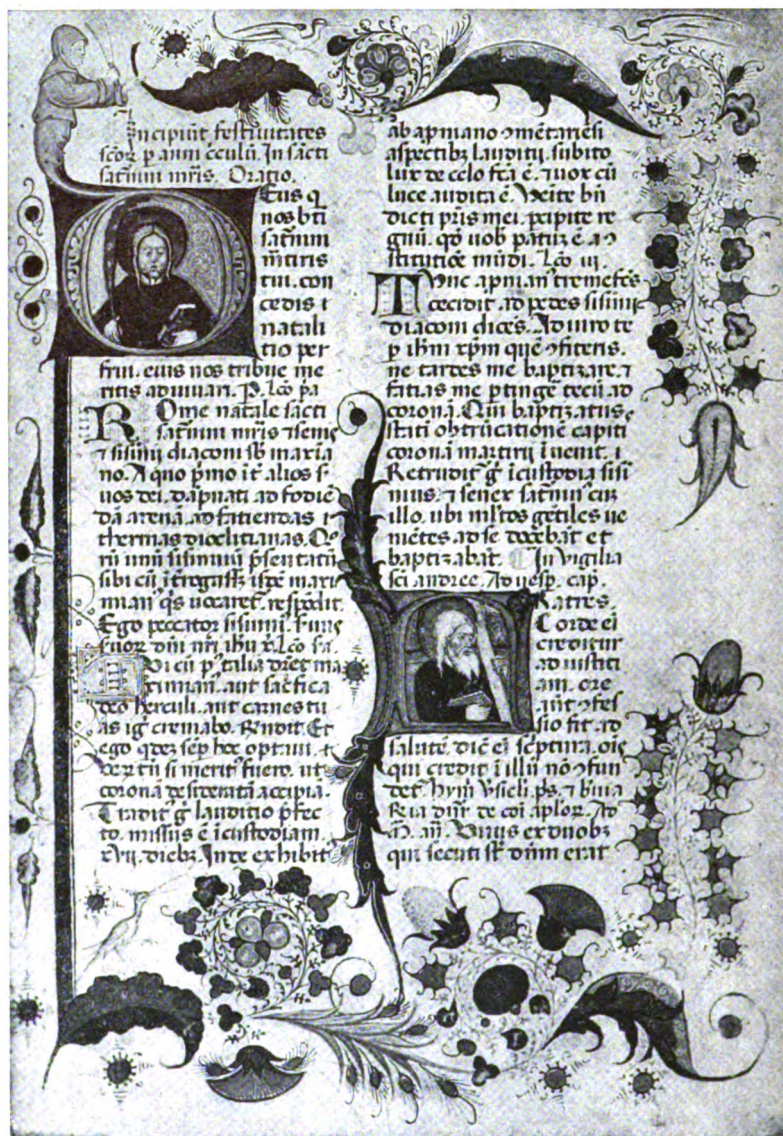 Incipiũt festiuitates
scõr p anni cculũ. In sãcti
satñini mris. Oratio.
Eus q
nos bti
satñini
mtiris
tui. con
cedis i
natali
tio per
frui. eius nos tribue me
ritis adiuuari. P. Lcõ pa
Rome natale sãcti
satñini mris
τ sisinii diaconi sb maxia
no. A quo pmo it alios s
uos dei. dapnati ad fodiẽ
dã arenã. ad fatiendas i
thermas dioclitianas.
rũ unũ sisiniũ psentatũ
sibi cũ
mian qs uocaret. respõdit.
Ego peccator sisinii.
dñi nri ihu x. Lcõ
cũ p talia diẽt ma
timian. aut sacfica
deo herculi. aut carnes tu
as ig cremabo. Rñdit. Et
ego qdez sep hoc optaui. τ
si merit fuero. ut
coronã desiteratã accipia.
Tradit g lauditio pfec
to. missus ẽ icustodiam
xvii. diebz. Inde exhibit
ab apniano
aspectibz lauditii. subito
lux de celo fta ẽ. τ uox cũ
luce audita ẽ. Veite bñ
dicti pris mei. pcipite re
gnũ. qd uob patuz ẽ a
stitutiõe mũdi. Lcõ iii.
Tunc apnian tremefcs
cecidit ad pedes sisinii
diaconi dicẽs. Adiuro te
p ihm xpm quẽ ɔfiteris.
ne tardes me baptizare. τ
fatias me ptingẽ tecũ ad
coronã. Qui baptizatus
stati obtrũcatione capiti
coronã martirii iuenit. i
Retrudit g icustodia sisi
nius. τ senex satñin cuz
illo. ubi mltos gẽtiles ue
niẽtes ad se docebãt et
baptizabãt. In uigilia
sci andree. Ad uesp. cap.
Ratres.
Corde ei
creditur
ad iustiti
am. ore
aũt ɔfes
sio fit ad
salutẽ. diẽ ei sciptura. ois
qui credit i illũ nõ ɔfun
det. hym
de coi aplor. Ad
Vnus ex duobz
qui secuti st dñm erat